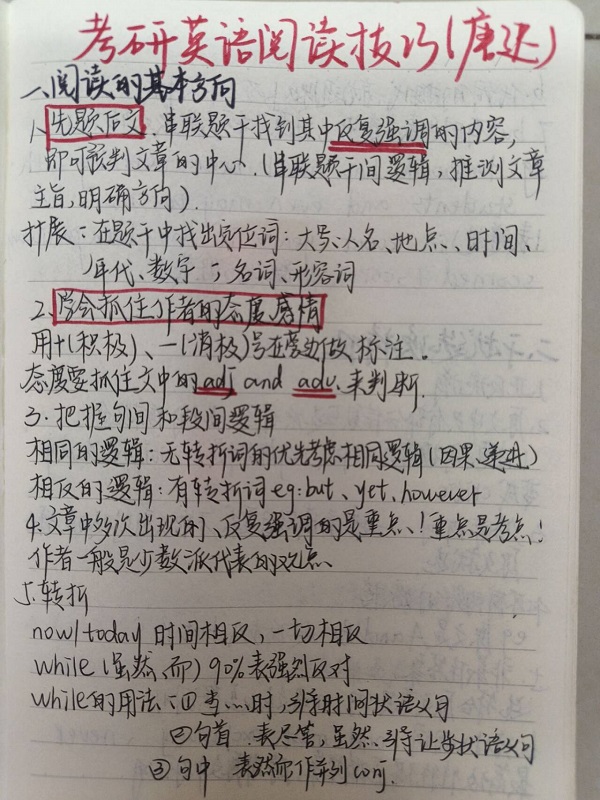 考研英语阅读技巧(唐迟)
一、阅读的基本方向
1、先题后文.串联题干找到其中反复强调的内容,
即可预判文章的中心.(串联题干间逻辑,推测文章
主旨,明确方向)
扩展:在题干中找出定位词:大号、人名、地点、时间、
年代、数字 → 名词、形容词
2、学会抓住作者的态度、感情
用+(积极)、-(消极)号在旁边做标注.
态度要抓住文中的adj and adv.来判断.
3.把握句间和段间逻辑
相同的逻辑:无转折词的优先考虑相同逻辑(因果、递进)
相反的逻辑:有转折词eg:but、yet、however
4.文章中多次出现的、反复强调的是重点!重点是考点!
作者一般是少数派代表的观点
5.转折
now/today 时间相反,一切相反
while(虽然、而)90%表强烈反对
while的用法:①当…时,引导时间状语从句
②句首 表尽管,虽然、引导让步状语从句
③句中 表然而作并列conj.